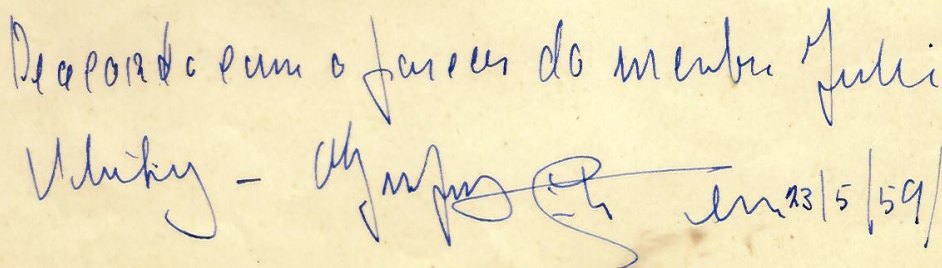 De acordo com o parecer do membro Julio
em 23/5/59